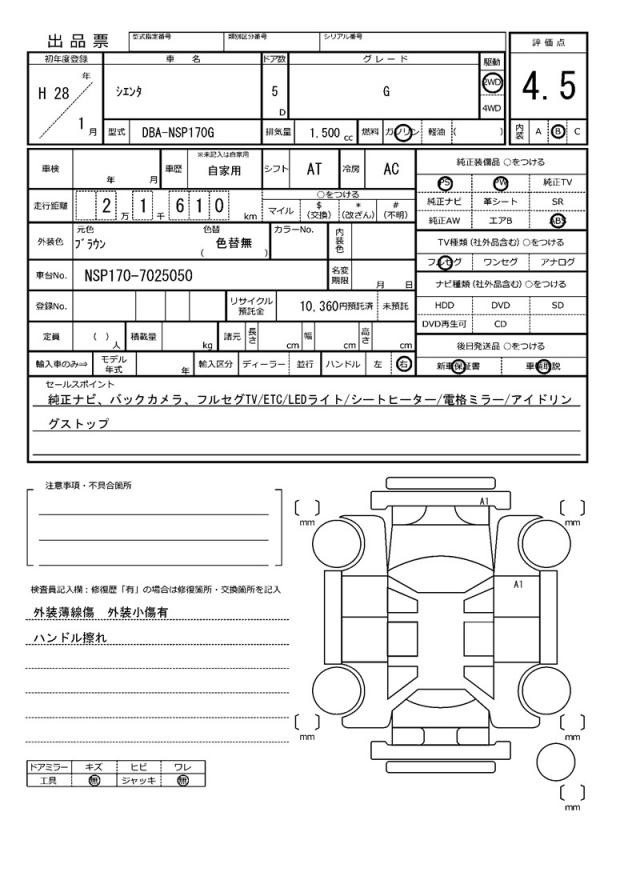 出品票 型式指定番号 類別区分番号 シリアル番号
初年度登録 車 名 ドア数 グレード 駆動 評価点
H 28 年 シエンタ 5 D G 2WD 4.5
4WD
1 月 型式 DBA-NSP170G 排気量 1.500 cc 燃料 ガソリン 軽油 ( ) 内装 A B C
車検 年 月 車歴 ※未記入は自家用 自家用 シフト AT 冷房 AC 純正装備品 ○をつける
PS PW 純正TV
走行距離 2 万 1 千 6 1 0 km ○をつける 純正ナビ 革シート SR
マイル $ (交換) * (改ざん) # (不明) 純正AW エアB ABS
外装色 元色 ブラウン 色替 ( 色替無 ) カラーNo. 内装色 TV種類(社外品含む)○をつける
フルセグ ワンセグ アナログ
車台No. NSP170-7025050 名変期限 月 日 ナビ種類(社外品含む)○をつける
登録No. リサイクル預託金 10,360円預託済 未預託 HDD DVD SD
DVD再生可 CD
定員 ( ) 人 積載量 kg 諸元 長さ cm 幅 cm 高さ cm 後日発送品 ○をつける
輸入車のみ⇒ モデル年式 年 輸入区分 ディーラー 並行 ハンドル 左 右 新車保証書 車輌取説
セールスポイント
純正ナビ、バックカメラ、フルセグTV/ETC/LEDライト/シートヒーター/電格ミラー/アイドリン
グストップ
注意事項・不具合箇所
A1
mm mm
検査員記入欄：修復歴「有」の場合は修復箇所・交換箇所を記入
A1
外装薄線傷 外装小傷有
ハンドル擦れ
mm mm
ドアミラー キズ ヒビ ワレ
工具 無 ジャッキ 無
mm